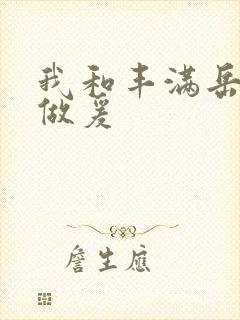 我和丰满岳
做爰
詹生應